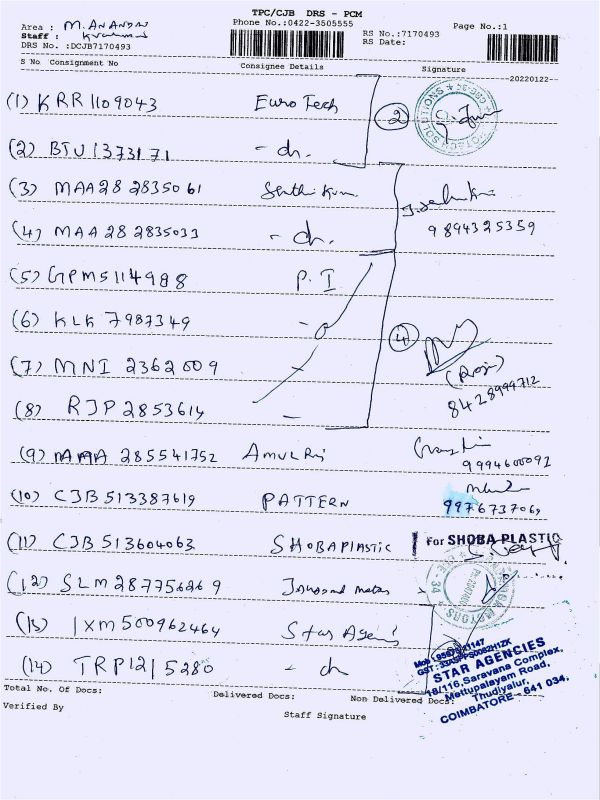 TPC/CJB DRS - PCM
Area : M. ANANDAN Phone No.:0422-3505555 Page No.:1
Staff : RS No.:7170493
DRS No. :DCJB7170493 RS Date:
S No Consignment No Consignee Details Signature
20220122
(1) KRR 1109043 Euro Tech (2)
(2) BTU 1373171 - do.
(3) MAA28 2835061 Senthil Kum
(4) MAA 28 2835033 - do. 9894325359
(5) GPM5114988 P. I
(6) KLK 7987349 (4)
(7) MNI 2362009
(8) RJP 2853614 8428999712
(9) MAA 285541752 AMUL
9994600092
(10) CJB 513387619 PATTERN 9976737069
(11) CJB 513604063 SHOBAPLASTIC For SHOBA PLASTIC
(12) SLM 287756269
(13) IXM500962464 Star
(14) TRP1215280 - do
STAR AGENCIES
18/116, Saravana Complex,
Mettupalayam Road,
Thudiyalur,
COIMBATORE - 641 034.
Total No. Of Docs: Delivered Docs: Non Delivered Docs:
Verified By Staff Signature